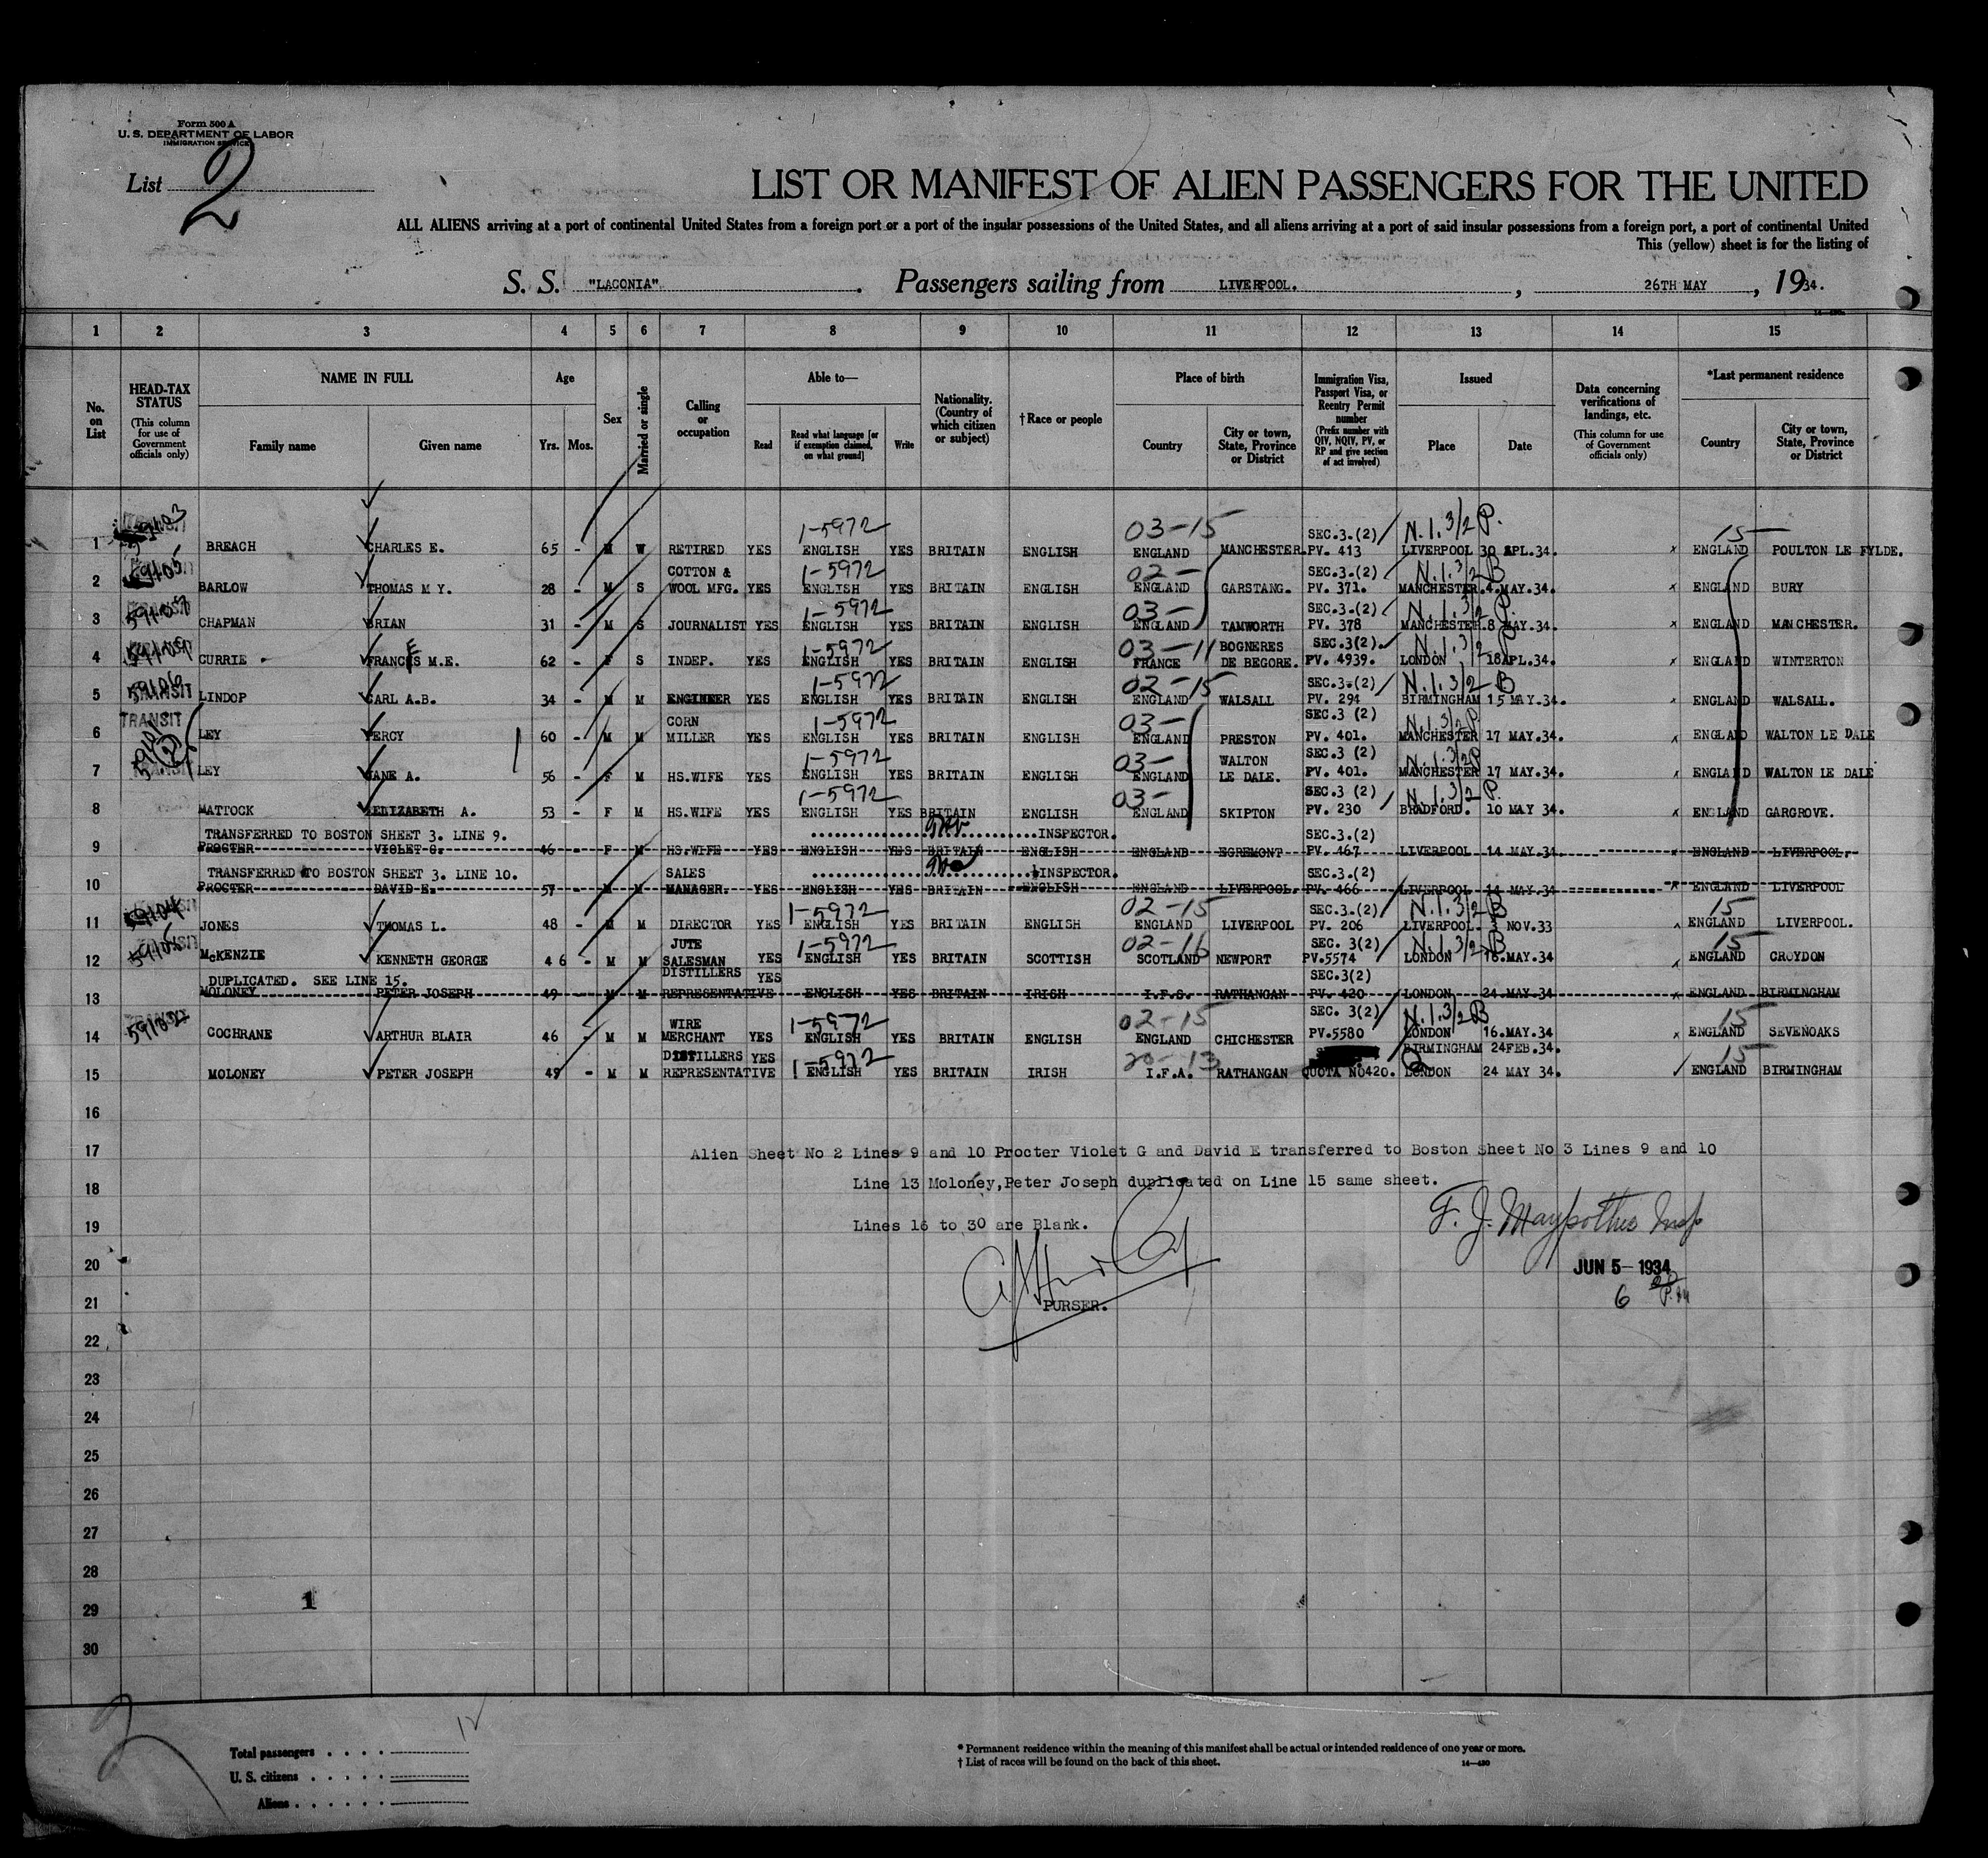 Form 500 A
U. S. DEPARTMENT OF LABOR
IMMIGRATION SERVICE
List 2
LIST OR MANIFEST OF ALIEN PASSENGERS FOR THE UNITED
ALL ALIENS arriving at a port of continental United States from a foreign port or a port of the insular possessions of the United States, and all aliens arriving at a port of said insular possessions from a foreign port, a port of continental United
This (yellow) sheet is for the listing of
S. S. "LACONIA". Passengers sailing from LIVERPOOL. , 26TH MAY , 1934.
1 2 3 4 5 6 7 8 9 10 11 12 13 14 15
No. on List
HEAD-TAX STATUS (This column for use of Government officials only)
NAME IN FULL
Family name Given name
Age
Yrs. Mos.
Sex
Married or single
Calling or occupation
Able to—
Read Read what language [or if exemption claimed, on what ground] Write
Nationality. (Country of which citizen or subject)
†Race or people
Place of birth
Country City or town, State, Province or District
Immigration Visa, Passport Visa, or Reentry Permit number (Prefix number with QIV, NQIV, PV, or RP and give section of act involved)
Issued
Place Date
Data concerning verifications of landings, etc. (This column for use of Government officials only)
*Last permanent residence
Country City or town, State, Province or District
59103 1-5972 03-15 SEC.3.(2) N.I.3/2 P. 15
1 BREACH CHARLES E. 65 - M W RETIRED YES ENGLISH YES BRITAIN ENGLISH ENGLAND MANCHESTER. PV. 413 LIVERPOOL 30 APL.34. x ENGLAND POULTON LE FYLDE.
59105 COTTON & 1-5972 02- SEC.3.(2) N.I.3/2 B
2 BARLOW THOMAS M Y. 28 - M S WOOL MFG. YES ENGLISH YES BRITAIN ENGLISH ENGLAND GARSTANG. PV. 371. MANCHESTER. 4.MAY.34. x ENGLAND BURY
1-5972 03- SEC.3.(2) N.I.3/2 P.
3 CHAPMAN BRIAN 31 - M S JOURNALIST YES ENGLISH YES BRITAIN ENGLISH ENGLAND TAMWORTH PV. 378 MANCHESTER. 8 MAY.34. x ENGLAND MANCHESTER.
1-5972 03-11 BOGNERES SEC.3(2). N.I.3/2 P
4 CURRIE FRANCES M.E. 62 - F S INDEP. YES ENGLISH YES BRITAIN ENGLISH FRANCE DE BEGORE. PV. 4939. LONDON 18APL.34. x ENGLAND WINTERTON
59106 TRANSIT 1-5972 02-15 SEC.3.(2) N.I.3/2 B
5 LINDOP CARL A.B. 34 - M M ENGINEER YES ENGLISH YES BRITAIN ENGLISH ENGLAND WALSALL PV. 294 BIRMINGHAM 15 MAY.34. x ENGLAND WALSALL.
TRANSIT CORN 1-5972 03- SEC.3 (2) N.I.3/2 P
6 LEY PERCY 60 - M M MILLER YES ENGLISH YES BRITAIN ENGLISH ENGLAND PRESTON PV. 401. MANCHESTER 17 MAY.34. x ENGLAND WALTON LE DALE
TRANSIT 1-5972 03- WALTON SEC.3 (2) N.I.3/2 P
7 LEY JANE A. 56 - F M HS.WIFE YES ENGLISH YES BRITAIN ENGLISH ENGLAND LE DALE. PV. 401. MANCHESTER 17 MAY.34. x ENGLAND WALTON LE DALE
1-5972 03- SEC.3 (2) N.I.3/2 P.
8 MATTOCK ELIZABETH A. 53 - F M HS.WIFE YES ENGLISH YES BRITAIN ENGLISH ENGLAND SKIPTON PV. 230 BRADFORD. 10 MAY 34. x ENGLAND GARGROVE.
TRANSFERRED TO BOSTON SHEET 3. LINE 9. INSPECTOR. SEC.3.(2)
9 PROCTER VIOLET G. 46 - F M HS.WIFE YES ENGLISH YES BRITAIN ENGLISH ENGLAND EGREMONT PV. 467 LIVERPOOL 14 MAY.34 x ENGLAND LIVERPOOL.
TRANSFERRED TO BOSTON SHEET 3. LINE 10. SALES INSPECTOR. SEC.3.(2)
10 PROCTER DAVID E. 57 - M M MANAGER. YES ENGLISH YES BRITAIN ENGLISH ENGLAND LIVERPOOL. PV. 466 LIVERPOOL 14 MAY.34 x ENGLAND LIVERPOOL
59104 1-5972 02-15 SEC.3.(2) N.I.3/2 B 15
11 JONES THOMAS L. 48 - M M DIRECTOR YES ENGLISH YES BRITAIN ENGLISH ENGLAND LIVERPOOL PV. 206 LIVERPOOL. 3 NOV.33 x ENGLAND LIVERPOOL.
JUTE 1-5972 02-16 SEC. 3(2) N.I.3/2 B 15
12 McKENZIE KENNETH GEORGE 46 - M M SALESMAN YES ENGLISH YES BRITAIN SCOTTISH SCOTLAND NEWPORT PV.5574 LONDON 16.MAY.34 x ENGLAND CROYDON
DUPLICATED. SEE LINE 15. DISTILLERS YES SEC.3(2)
13 MOLONEY PETER JOSEPH 49 - M M REPRESENTATIVE ENGLISH YES BRITAIN IRISH I.F.S. RATHANGAN PV. 420 LONDON 24 MAY.34 x ENGLAND BIRMINGHAM
WIRE 1-5972 02-15 SEC. 3(2) N.I.3/2 B 15
14 COCHRANE ARTHUR BLAIR 46 - M M MERCHANT YES ENGLISH YES BRITAIN ENGLISH ENGLAND CHICHESTER PV.5580 LONDON 16.MAY.34 x ENGLAND SEVENOAKS
DISTILLERS YES 1-5972 20-13 BIRMINGHAM 24FEB.34. 15
15 MOLONEY PETER JOSEPH 49 - M M REPRESENTATIVE ENGLISH YES BRITAIN IRISH I.F.A. RATHANGAN QUOTA NO420. LONDON 24 MAY 34. ENGLAND BIRMINGHAM
16
17 Alien Sheet No 2 Lines 9 and 10 Procter Violet G and David E transferred to Boston Sheet No 3 Lines 9 and 10
18 Line 13 Moloney,Peter Joseph duplicated on Line 15 same sheet.
19 Lines 16 to 30 are Blank.
F. J. Insp
20 JUN 5- 1934
21 PURSER. 6 P.M
22
23
24
25
26
27
28
29 1
30
12
Total passengers
U. S. citizens
Aliens
* Permanent residence within the meaning of this manifest shall be actual or intended residence of one year or more.
† List of races will be found on the back of this sheet. 14—430